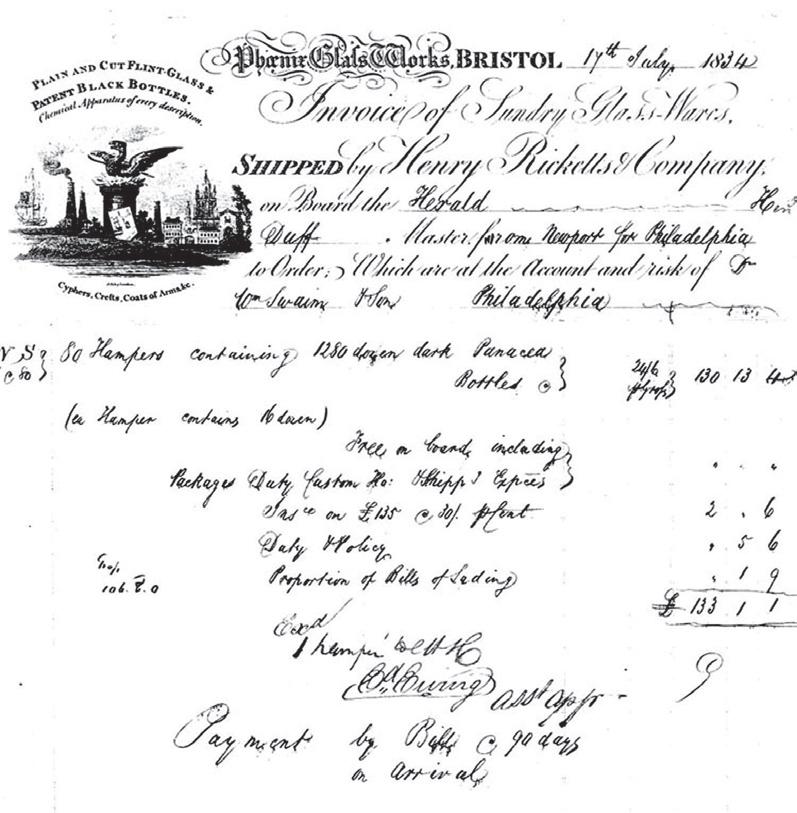 PLAIN AND CUT FLINT-GLASS &
PATENT BLACK BOTTLES.
Chemical Apparatus of every description.
Cyphers, Crests, Coats of Arms &c.
Phœnix Glass Works, BRISTOL 17th July 1834
Invoice of Sundry Glass-Wares,
SHIPPED by Henry Ricketts & Company,
on Board the Herald
Duff Master from Newport for Philadelphia
to Order; Which are at the Account and risk of
Wm Swaim & Son Philadelphia
80 Hampers containing 1280 dozen dark Panacea
Bottles @ 24/6 130 13 4
(ea Hamper contains 16 dozen)
Free on board, including
Packages Duty Custom Ho: & Shipps Expces " " "
Insce on £135 @ 30/. p Cent 2 . 6
Duty & Policy " 5 6
Proportion of Bills of Lading " 1 9
£ 133 1 1
Exd
1 hamper
Ed Ewing asst appr
Payment by Bill @ 90 days
on arrival